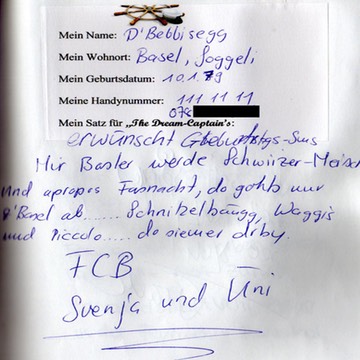 Mein Name: D'Bebbisegg
Mein Wohnort: Basel, Joggeli
Mein Geburtsdatum: 10.1.79
Meine Handynummer: 111 11 11
078
Mein Satz für „The Dream-Captain's:
erwünscht Geburtstags-Sms
Mir Basler werde Schwizer-Meister
Und apropos Fasnacht, do gohts nur
z'Basel ab...... Schnitzelbängg, Waggis
und Piccolo..... do siemer drby.
FCB
Svenja und Uni